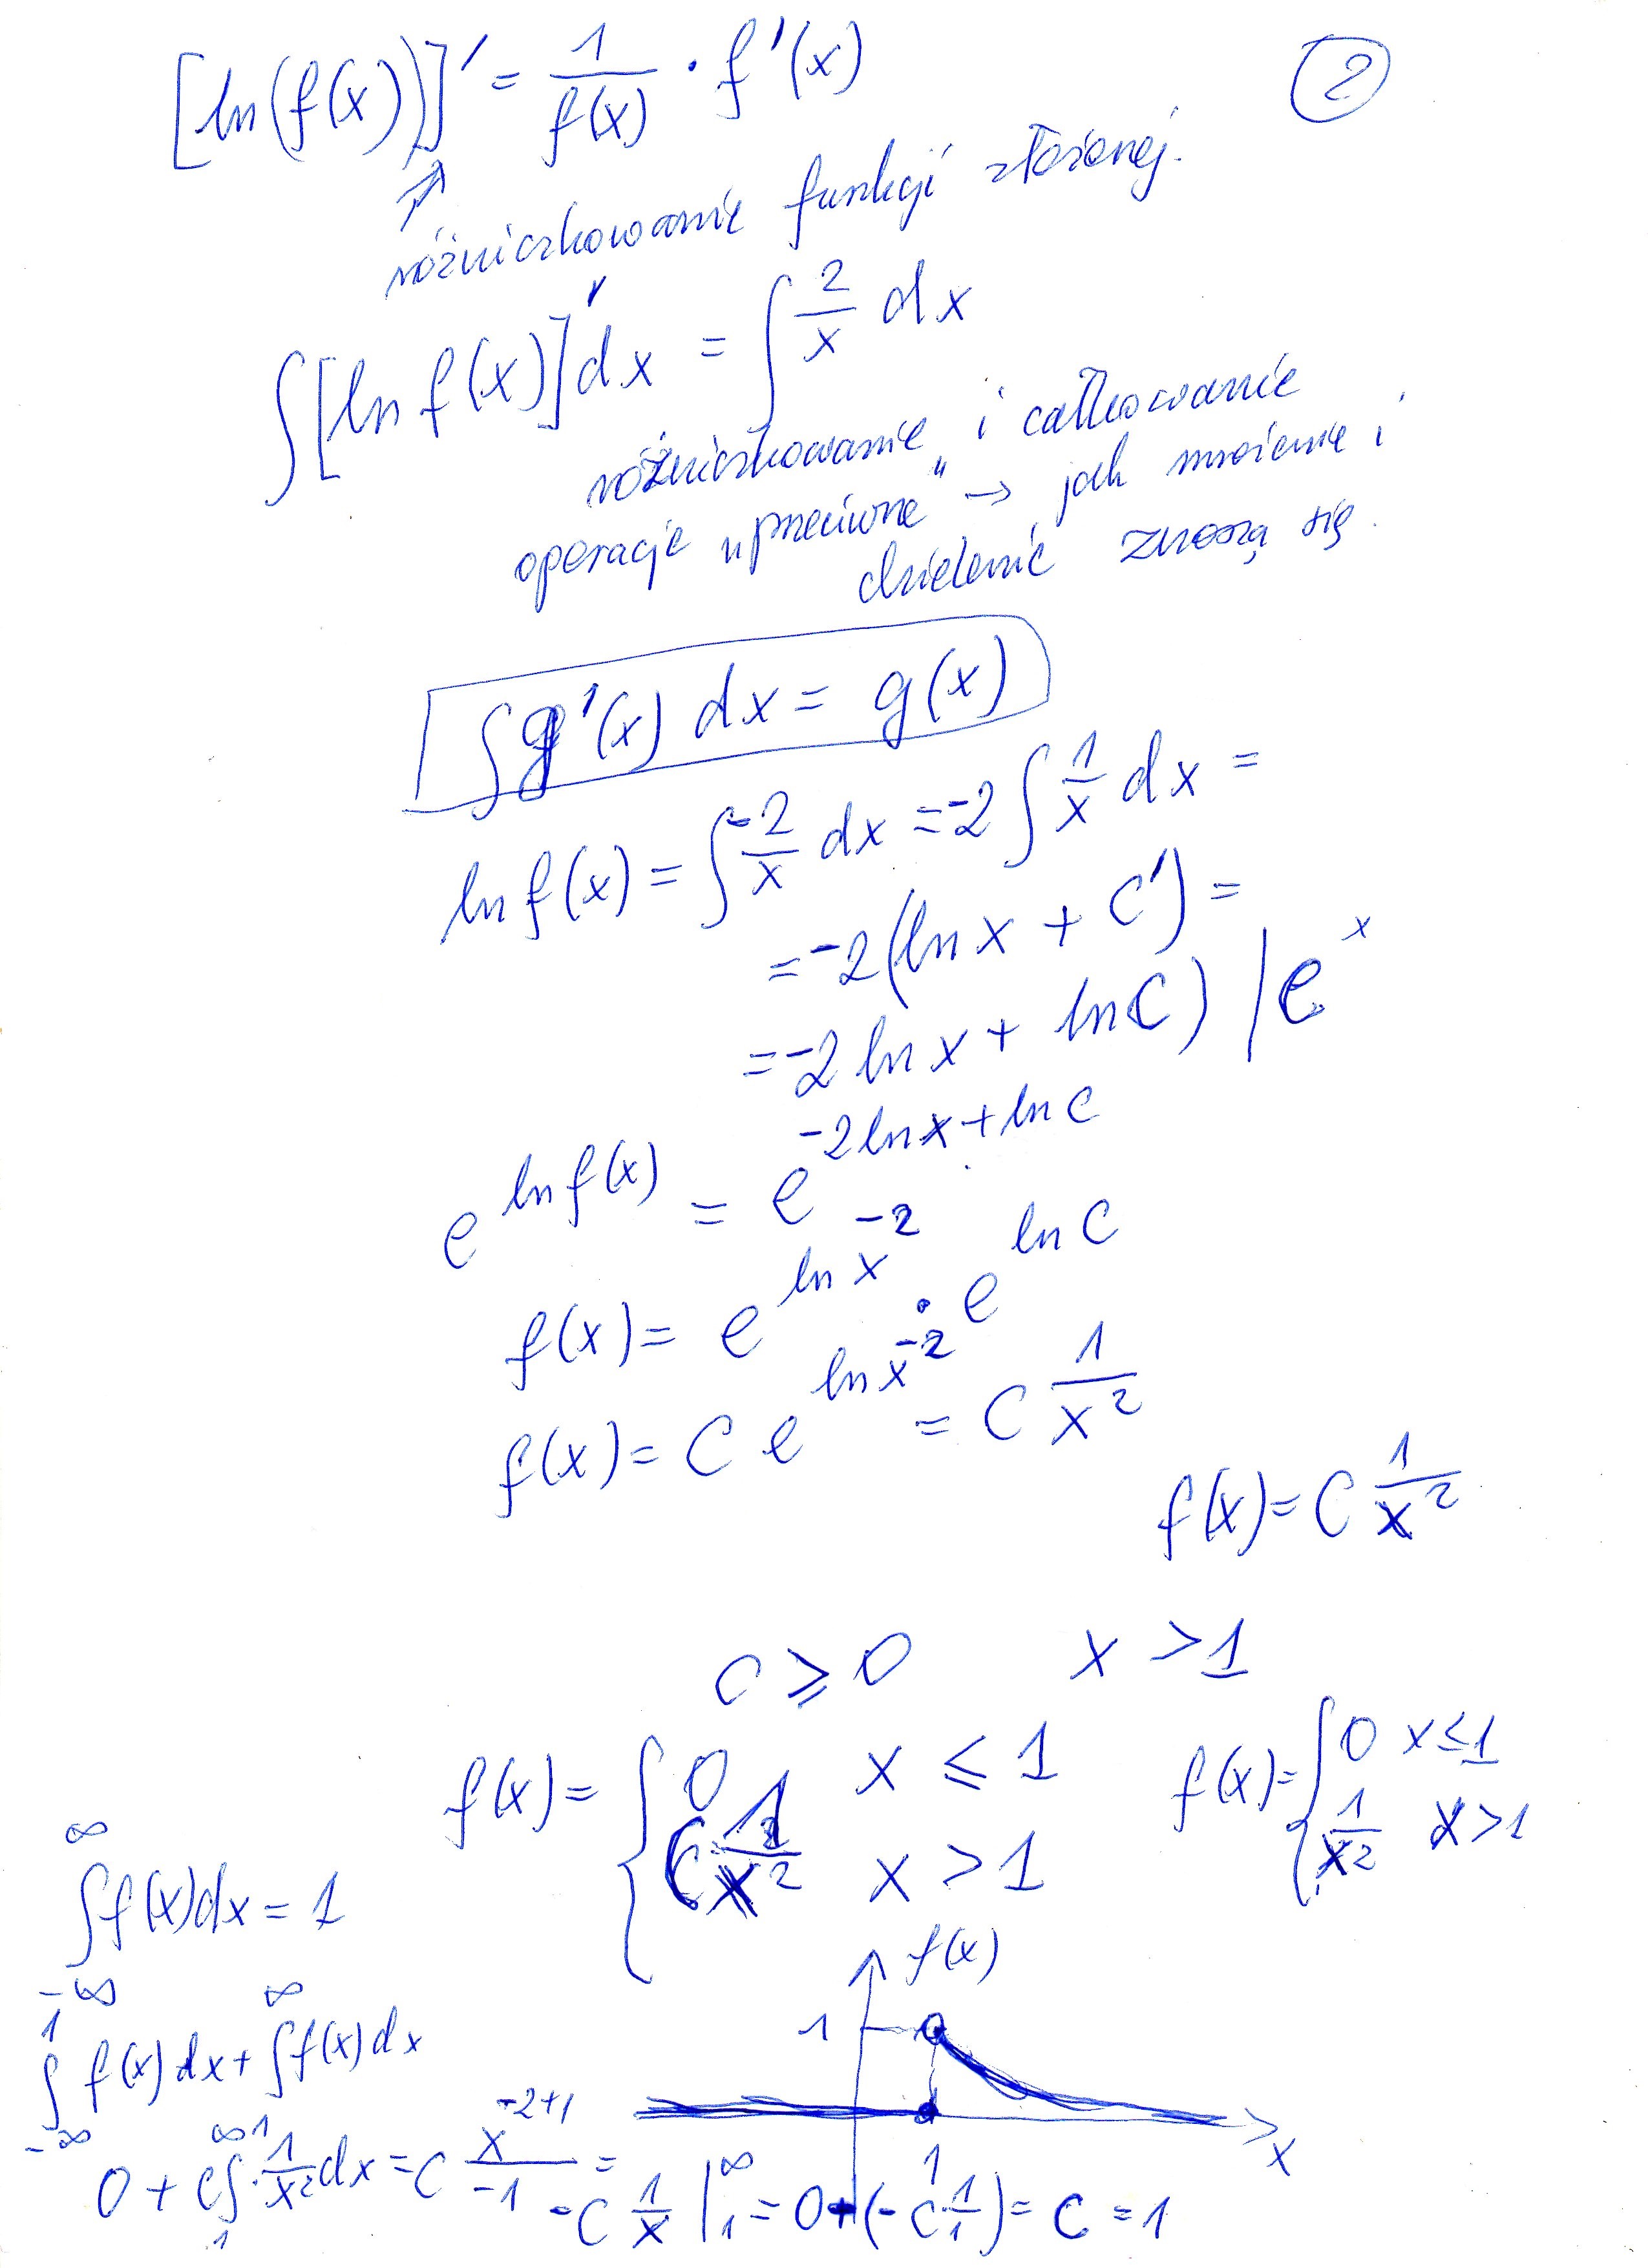 [ln(f(x))]' = 1/f(x) · f'(x)
2
różniczkowanie funkcji złożonej.
∫[ln f(x)]'dx = ∫ 2/x dx
różniczkowanie i całkowanie
operacje "przeciwne" → jak mnożenie i
dzielenie znoszą się.
∫g'(x) dx = g(x)
ln f(x) = ∫ -2/x dx = -2 ∫ 1/x dx =
= -2(ln x + C') =
= -2 ln x + ln C) / e^x
e^{ln f(x)} = e^{-2 ln x + ln C}
f(x) = e^{ln x^{-2}} · e^{ln C}
f(x) = C e^{ln x^{-2}} = C 1/x^2
f(x) = C 1/x^2
C ⩾ 0 x > 1
f(x) = { 0 x ≤ 1
C 1/x^2 x > 1
f(x) = { 0 x ≤ 1
1/x^2 x > 1
∫_{-∞}^{∞} f(x)dx = 1
∫_{-∞}^{1} f(x)dx + ∫^{∞} f(x)dx
f(x)
1
x
1
0 + C∫_1^∞ 1/x^2 dx = C x^{-2+1}/-1 =
-C 1/x |_1^∞ = 0 + (-C · 1/1) = C = 1